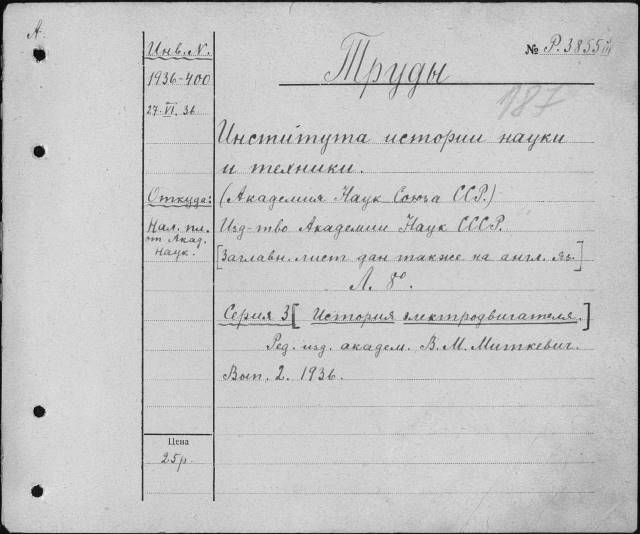 А.
Инв. N.
1936-400
27 VI. 36
Откуда:
Нал. пл.
от Акад.
Наук.
Цена
25р.
№ Р.3855/III
Труды
187
Института истории науки
и техники.
(Академия Наук Союза ССР.)
Изд-тво Академии Наук СССР.
[Заглавн. лист дан также на англ. яз.]
Л. 8º.
Серия 3 [История електродвигателя.]
Ред. изд. академ. В. М. Миткевич.
Вып. 2. 1936.